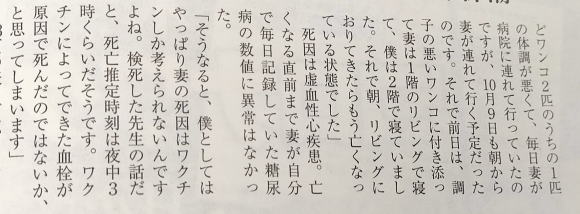 どワンコ2匹のうちの1匹
の体調が悪くて、毎日妻が
病院に連れて行っていたの
ですが、10月9日も朝から
妻が連れて行く予定だった
のです。それで前日は、調
子の悪いワンコに付き添っ
て妻は1階のリビングで寝
て、僕は2階で寝ていまし
た。それで朝、リビングに
おりてきたらもう亡くなっ
ている状態でした」
死因は虚血性心疾患。亡
くなる直前まで妻が自分
で毎日記録していた糖尿
病の数値に異常はなかっ
た。
「そうなると、僕としては
やっぱり妻の死因はワクチ
ンしか考えられないんです
よね。検死した先生の話だ
と、死亡推定時刻は夜中3
時くらいだそうです。ワク
チンによってできた血栓が
原因で死んだのではないか、
と思ってしまいます」